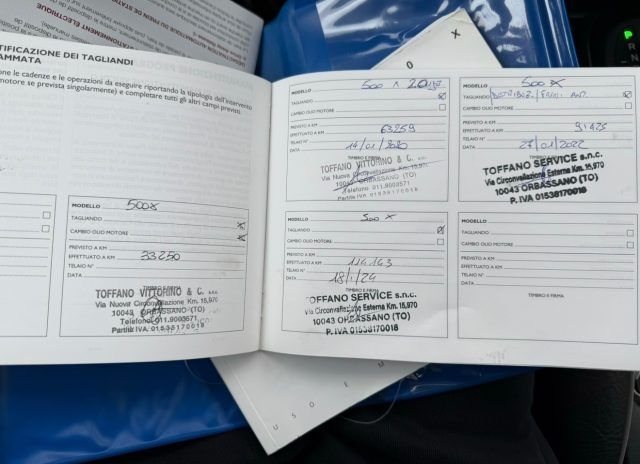 TIFICAZIONE DEI TAGLIANDI
AMMATA
one le cadenze e le operazioni da eseguire riportando la tipologia dell'intervento
motore se prevista singolarmente) e completare tutti gli altri campi previsti.
MODELLO 500X
TAGLIANDO
CAMBIO OLIO MOTORE
PREVISTO A KM
EFFETTUATO A KM 33250
TELAIO N°
DATA
TIMBRO E FIRMA
TOFFANO VITTORINO & C. s.n.c.
Via Nuova Circonvallazione Km. 15,970
10043 ORBASSANO (TO)
Telefono 011.9003571
Partita IVA 01538170018
MODELLO 500 X
TAGLIANDO
CAMBIO OLIO MOTORE
PREVISTO A KM
EFFETTUATO A KM 63259
TELAIO N°
DATA 14/01/2020
TIMBRO E FIRMA
TOFFANO VITTORINO & C. s.n.c.
Via Nuova Circonvallazione Km. 15,970
10043 ORBASSANO (TO)
Telefono 011.9003571
Partita IVA 01538170018
MODELLO 500X
TAGLIANDO
CAMBIO OLIO MOTORE
PREVISTO A KM
EFFETTUATO A KM 91425
TELAIO N°
DATA 27/01/2022
TOFFANO SERVICE s.n.c.
Via Circonvallazione Esterna Km. 15,970
10043 ORBASSANO (TO)
P. IVA 01538170018
MODELLO 500 X
TAGLIANDO
CAMBIO OLIO MOTORE
PREVISTO A KM
EFFETTUATO A KM 114.143
TELAIO N°
DATA 18/1/24
TIMBRO E FIRMA
TOFFANO SERVICE s.n.c.
Via Circonvallazione Esterna Km. 15,970
10043 ORBASSANO (TO)
P. IVA 01538170018
MODELLO
TAGLIANDO
CAMBIO OLIO MOTORE
PREVISTO A KM
EFFETTUATO A KM
TELAIO N°
DATA
TIMBRO E FIRMA
USO E M